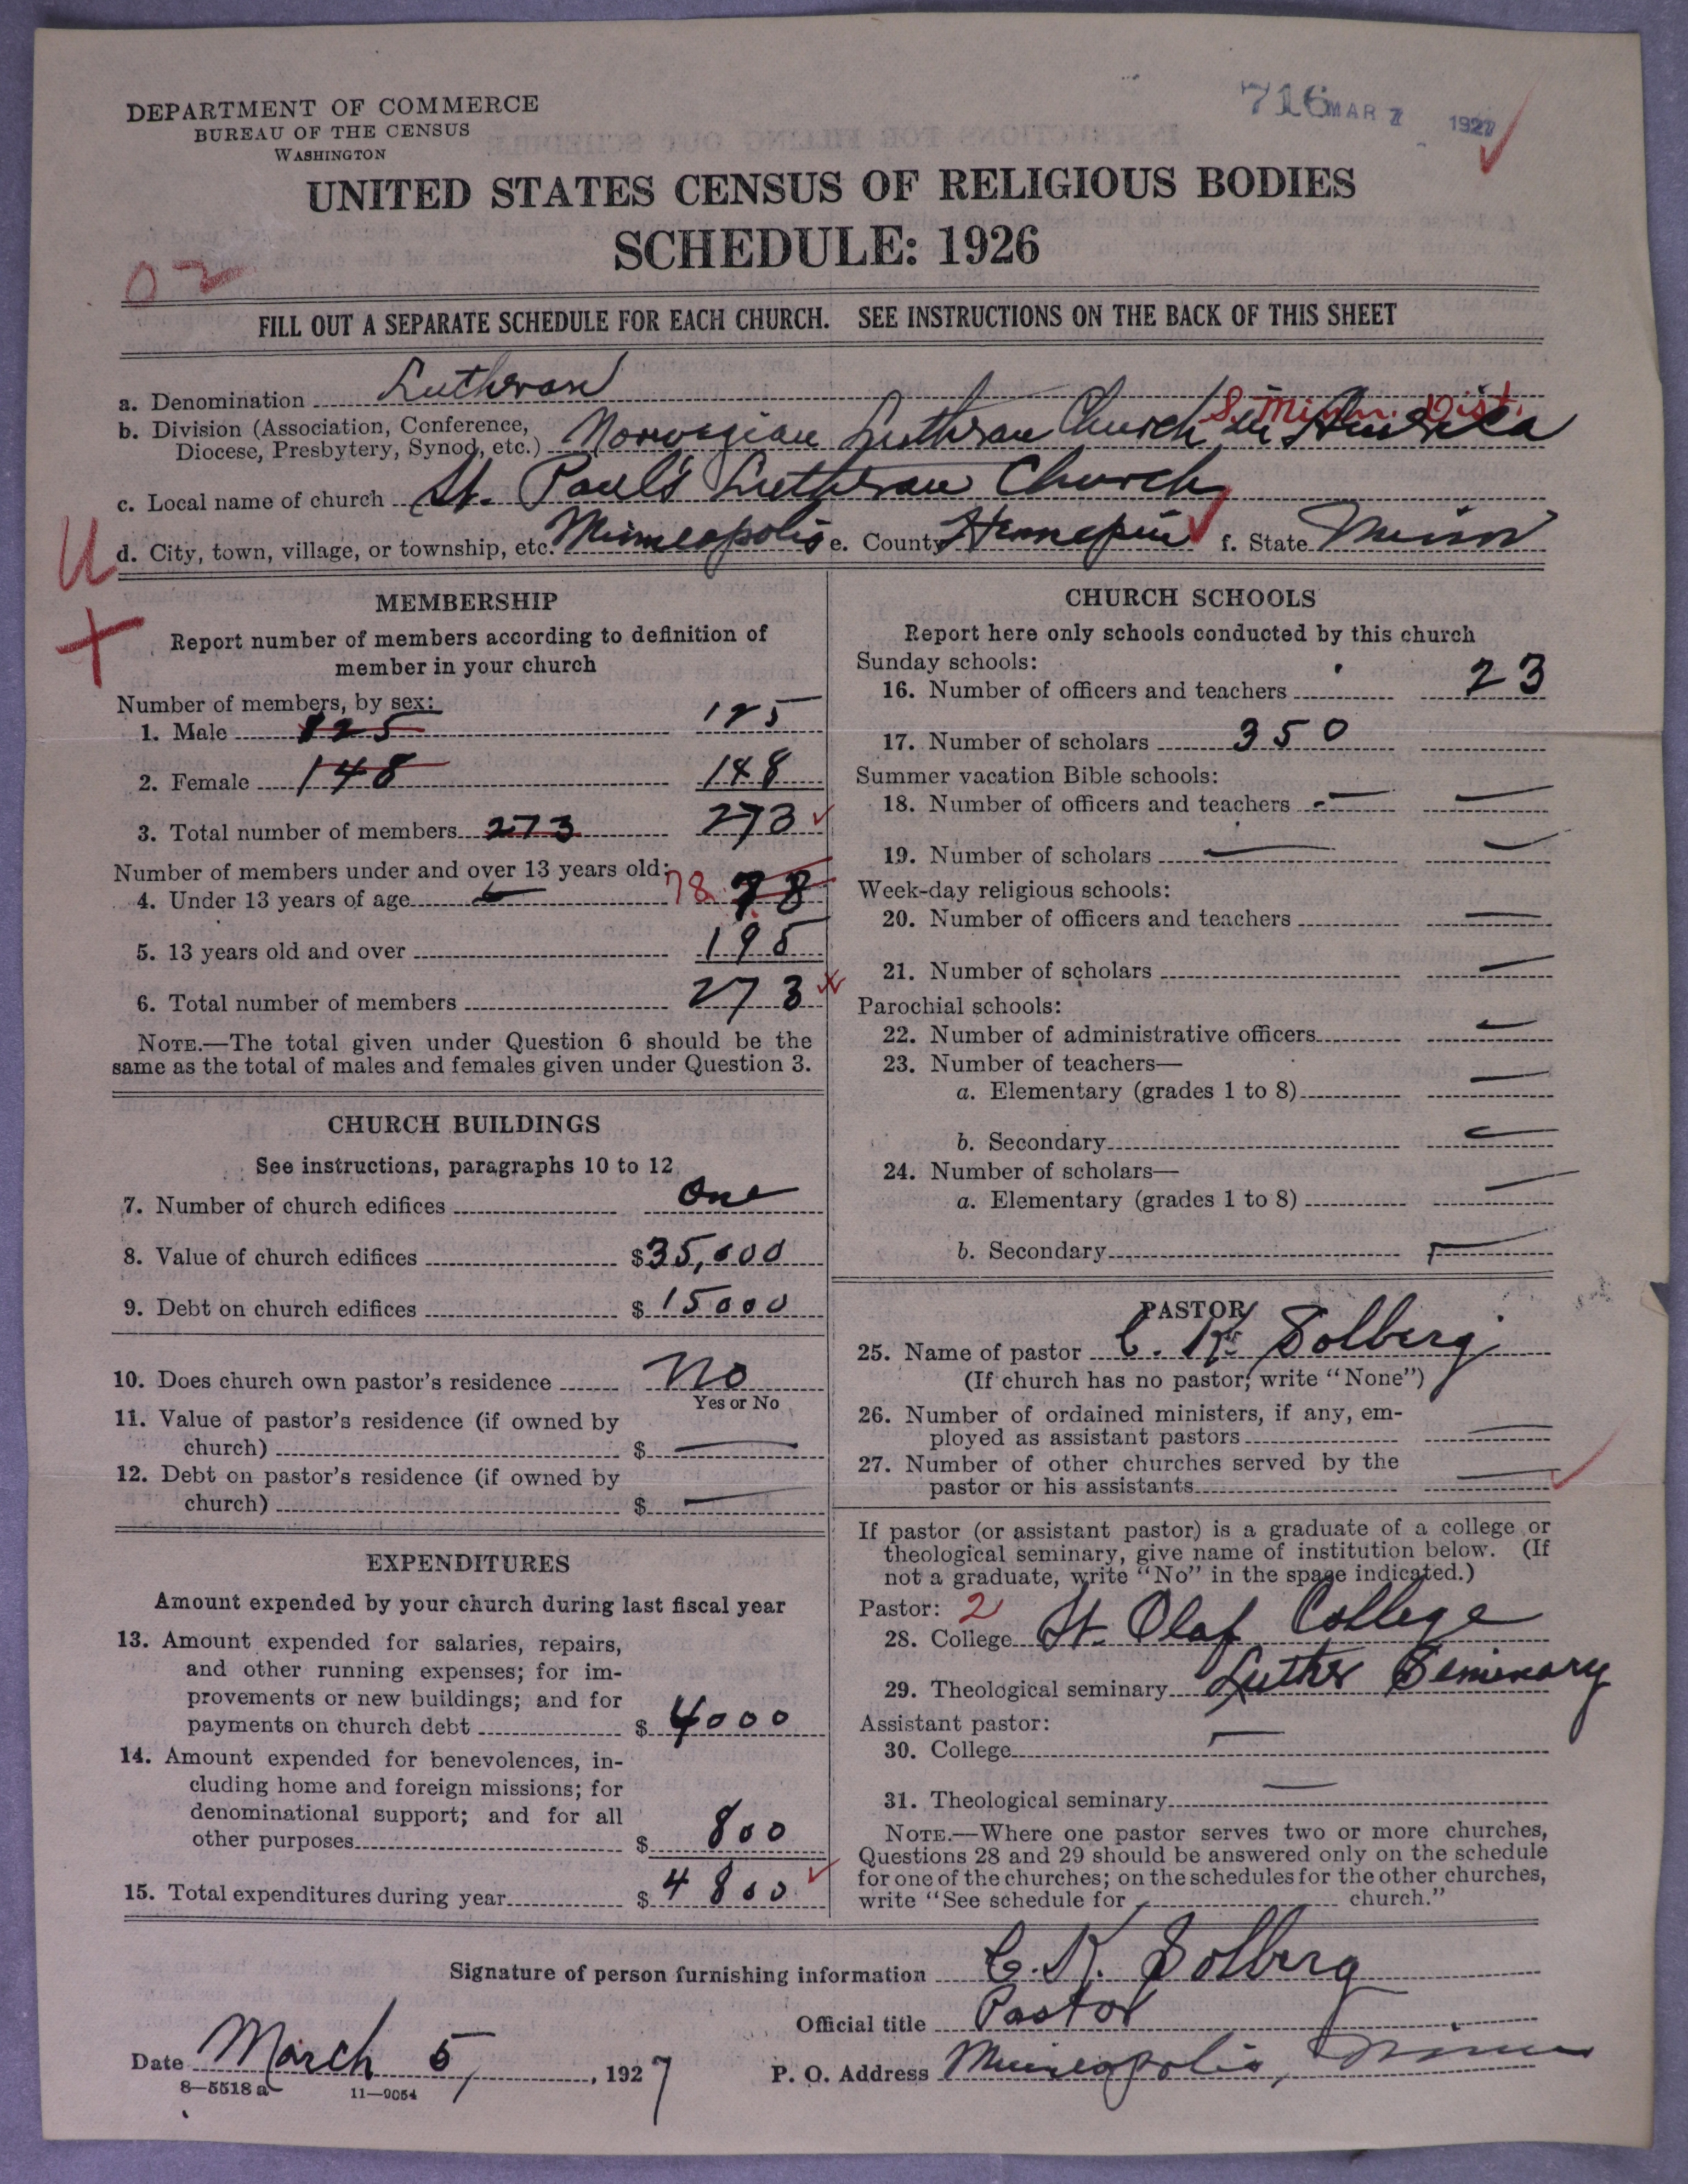 DEPARTMENT OF COMMERCE
BUREAU OF THE CENSUS
WASHINGTON
716 MAR 7 1927
UNITED STATES CENSUS OF RELIGIOUS BODIES
SCHEDULE: 1926
02
FILL OUT A SEPARATE SCHEDULE FOR EACH CHURCH. SEE INSTRUCTIONS ON THE BACK OF THIS SHEET
a. Denomination Lutheran
S. Minn. Dist.
b. Division (Association, Conference, Diocese, Presbytery, Synod, etc.) Norwegian Lutheran Church in America
c. Local name of church St. Paul's Lutheran Church
U
d. City, town, village, or township, etc. Minneapolis e. County Hennepin f. State Minn
+
MEMBERSHIP
Report number of members according to definition of
member in your church
Number of members, by sex:
1. Male 125 125
2. Female 148 148
3. Total number of members 273 273
Number of members under and over 13 years old:
4. Under 13 years of age 78 78
5. 13 years old and over 195
6. Total number of members 273
NOTE.—The total given under Question 6 should be the
same as the total of males and females given under Question 3.
CHURCH BUILDINGS
See instructions, paragraphs 10 to 12
7. Number of church edifices One
8. Value of church edifices $35,000
9. Debt on church edifices $15000
10. Does church own pastor's residence No
Yes or No
11. Value of pastor's residence (if owned by
church) $ —
12. Debt on pastor's residence (if owned by
church) $ —
EXPENDITURES
Amount expended by your church during last fiscal year
13. Amount expended for salaries, repairs,
and other running expenses; for im-
provements or new buildings; and for
payments on church debt $4000
14. Amount expended for benevolences, in-
cluding home and foreign missions; for
denominational support; and for all
other purposes $800
15. Total expenditures during year $4800
CHURCH SCHOOLS
Report here only schools conducted by this church
Sunday schools:
16. Number of officers and teachers 23
17. Number of scholars 350
Summer vacation Bible schools:
18. Number of officers and teachers — —
19. Number of scholars — —
Week-day religious schools:
20. Number of officers and teachers —
21. Number of scholars —
Parochial schools:
22. Number of administrative officers —
23. Number of teachers—
a. Elementary (grades 1 to 8) —
b. Secondary —
24. Number of scholars—
a. Elementary (grades 1 to 8) —
b. Secondary —
PASTOR
25. Name of pastor C. K. Solberg
(If church has no pastor, write "None")
26. Number of ordained ministers, if any, em-
ployed as assistant pastors —
27. Number of other churches served by the
pastor or his assistants —
If pastor (or assistant pastor) is a graduate of a college or
theological seminary, give name of institution below. (If
not a graduate, write "No" in the space indicated.)
Pastor: 2
28. College St. Olaf College
29. Theological seminary Luther Seminary
Assistant pastor:
30. College —
31. Theological seminary —
NOTE.—Where one pastor serves two or more churches,
Questions 28 and 29 should be answered only on the schedule
for one of the churches; on the schedules for the other churches,
write "See schedule for church."
Signature of person furnishing information C. K. Solberg
Official title Pastor
Date March 5, 1927 P. O. Address Minneapolis, Minn
8—5518 a 11—9054